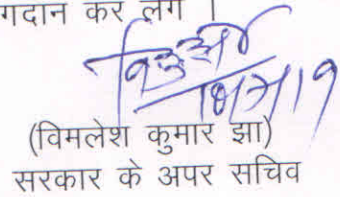 गदान कर लेंगे ।
(विमलेश कुमार झा)
सरकार के अपर सचिव